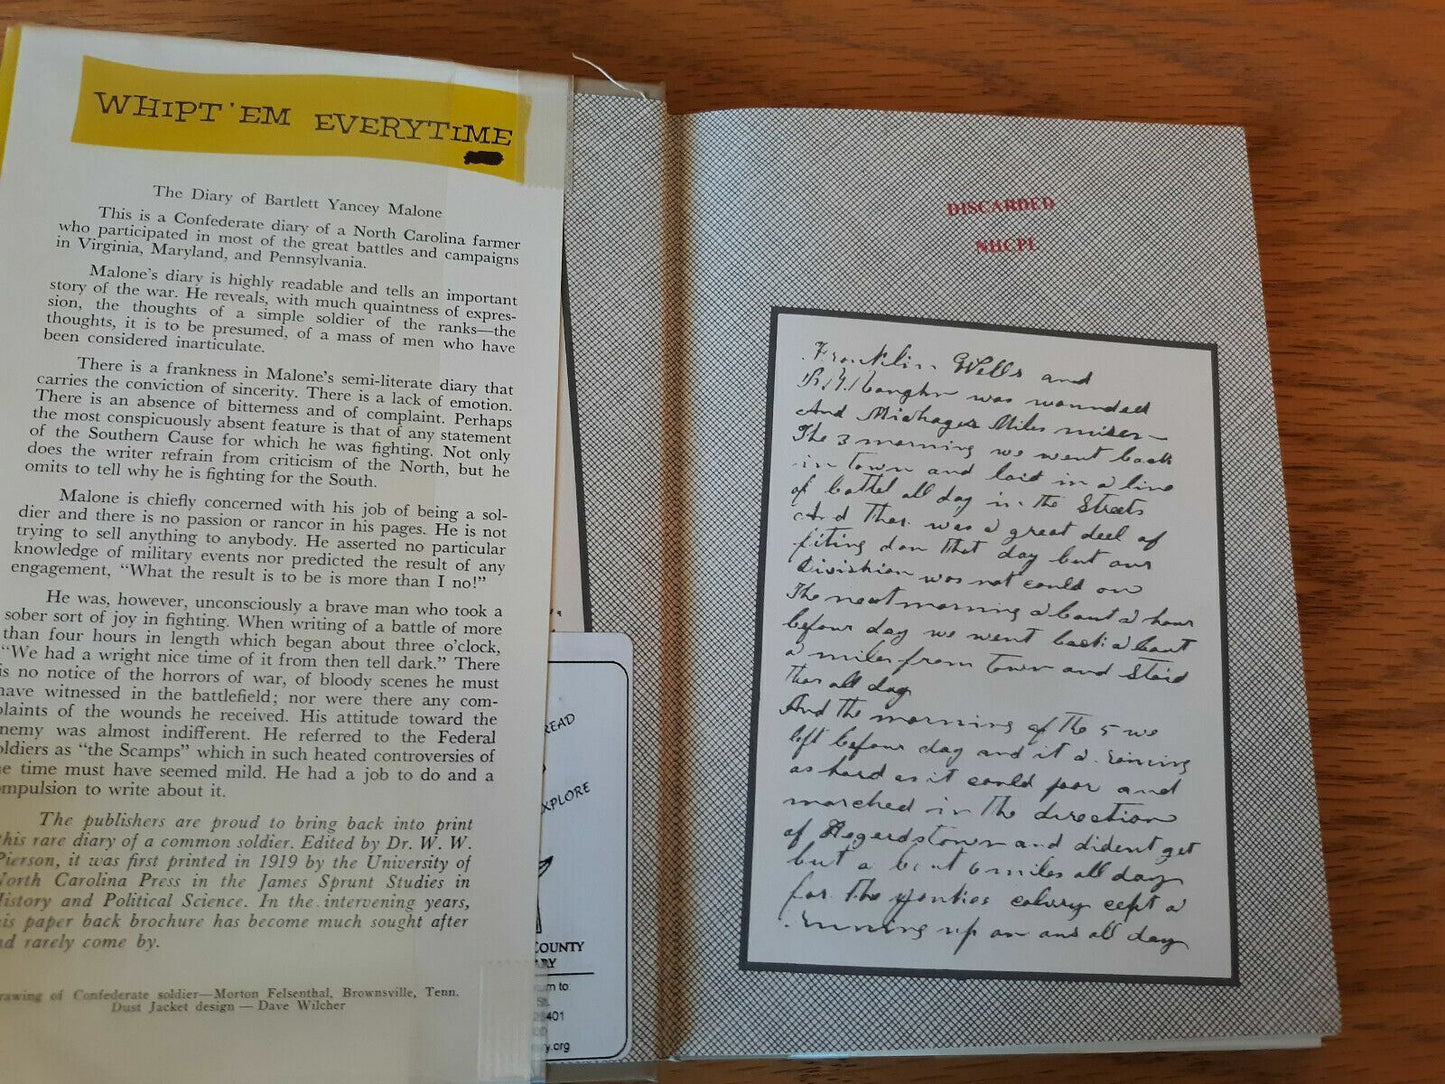 WHIPT 'EM EVERYTIME
The Diary of Bartlett Yancey Malone
This is a Confederate diary of a North Carolina farmer
who participated in most of the great battles and campaigns
in Virginia, Maryland, and Pennsylvania.
Malone's diary is highly readable and tells an important
story of the war. He reveals, with much quaintness of expres-
sion, the thoughts of a simple soldier of the ranks—the
thoughts, it is to be presumed, of a mass of men who have
been considered inarticulate.
There is a frankness in Malone's semi-literate diary that
carries the conviction of sincerity. There is a lack of emotion.
There is an absence of bitterness and of complaint. Perhaps
the most conspicuously absent feature is that of any statement
of the Southern Cause for which he was fighting. Not only
does the writer refrain from criticism of the North, but he
omits to tell why he is fighting for the South.
Malone is chiefly concerned with his job of being a sol-
dier and there is no passion or rancor in his pages. He is not
trying to sell anything to anybody. He asserted no particular
knowledge of military events nor predicted the result of any
engagement, "What the result is to be is more than I no!"
He was, however, unconsciously a brave man who took a
sober sort of joy in fighting. When writing of a battle of more
than four hours in length which began about three o'clock,
"We had a wright nice time of it from then tell dark." There
is no notice of the horrors of war, of bloody scenes he must
have witnessed in the battlefield; nor were there any com-
plaints of the wounds he received. His attitude toward the
enemy was almost indifferent. He referred to the Federal
soldiers as "the Scamps" which in such heated controversies of
the time must have seemed mild. He had a job to do and a
compulsion to write about it.
The publishers are proud to bring back into print
this rare diary of a common soldier. Edited by Dr. W. W.
Pierson, it was first printed in 1919 by the University of
North Carolina Press in the James Sprunt Studies in
History and Political Science. In the intervening years,
this paper back brochure has become much sought after
and rarely come by.
Drawing of Confederate soldier—Morton Felsenthal, Brownsville, Tenn.
Dust Jacket design — Dave Wilcher
READ
EXPLORE
COUNTY
RY
rn to:
St.
28401
.org
DISCARDED
NHCPL
Franklin Wells and
was wounded
And Miles misen
The 3 morning we went back
in town and laid in a line
of battel all day in the Streets
And thar was a great deel of
fiting don that day but our
Divishion was not cauld on
The next morning a bout a hour
befour day we went back a bout
a miles from town and Staid
thar all day
And the morning of the 5 we
left befour day and it a raning
as hard as it could poor and
marched in the direction
of Hagerdstown and dident get
but a bout 6 miles all day
for the yankies calvry cept a
running up on ans all day